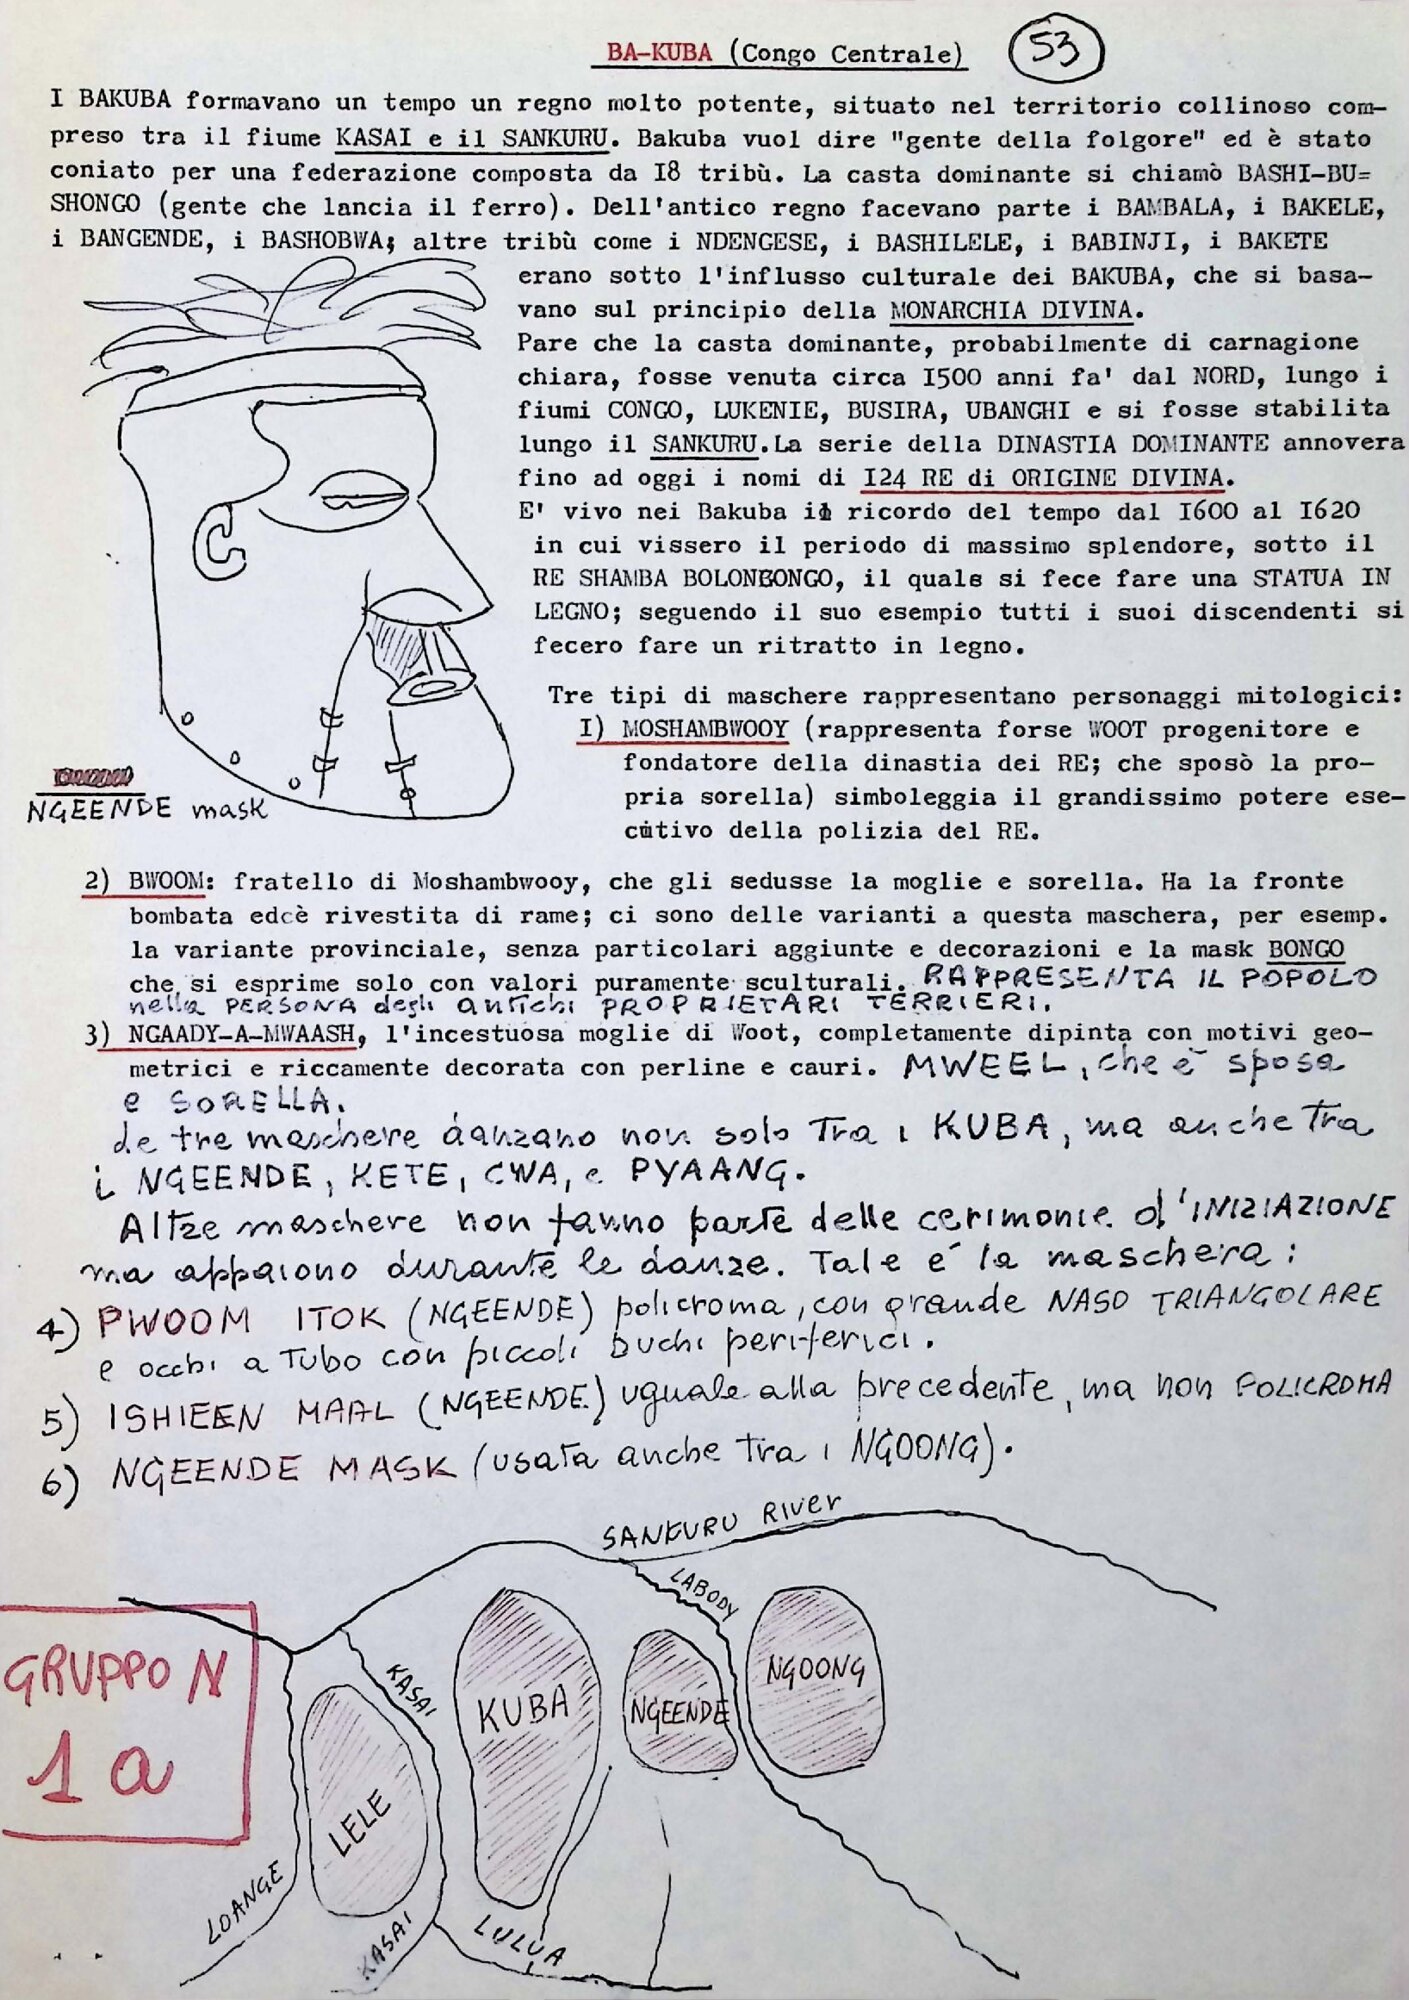 BA-KUBA (Congo Centrale) 53
I BAKUBA formavano un tempo un regno molto potente, situato nel territorio collinoso com-
preso tra il fiume KASAI e il SANKURU. Bakuba vuol dire "gente della folgore" ed è stato
coniato per una federazione composta da I8 tribù. La casta dominante si chiamò BASHI-BU=
SHONGO (gente che lancia il ferro). Dell'antico regno facevano parte i BAMBALA, i BAKELE,
i BANGENDE, i BASHOBWA; altre tribù come i NDENGESE, i BASHILELE, i BABINJI, i BAKETE
erano sotto l'influsso culturale dei BAKUBA, che si basa-
vano sul principio della MONARCHIA DIVINA.
Pare che la casta dominante, probabilmente di carnagione
chiara, fosse venuta circa I500 anni fa' dal NORD, lungo i
fiumi CONGO, LUKENIE, BUSIRA, UBANGHI e si fosse stabilita
lungo il SANKURU.La serie della DINASTIA DOMINANTE annovera
fino ad oggi i nomi di I24 RE di ORIGINE DIVINA.
E' vivo nei Bakuba il ricordo del tempo dal I600 al I620
in cui vissero il periodo di massimo splendore, sotto il
RE SHAMBA BOLONBONGO, il quale si fece fare una STATUA IN
LEGNO; seguendo il suo esempio tutti i suoi discendenti si
fecero fare un ritratto in legno.
Tre tipi di maschere rappresentano personaggi mitologici:
I) MOSHAMBWOOY (rappresenta forse WOOT progenitore e
fondatore della dinastia dei RE; che sposò la pro-
pria sorella) simboleggia il grandissimo potere ese-
cutivo della polizia del RE.
NGEENDE mask
2) BWOOM: fratello di Moshambwooy, che gli sedusse la moglie e sorella. Ha la fronte
bombata edcè rivestita di rame; ci sono delle varianti a questa maschera, per esemp.
la variante provinciale, senza particolari aggiunte e decorazioni e la mask BONGO
che si esprime solo con valori puramente sculturali. RAPPRESENTA IL POPOLO
nella PERSONA degli antichi PROPRIETARI TERRIERI.
3) NGAADY-A-MWAASH, l'incestuosa moglie di Woot, completamente dipinta con motivi geo-
metrici e riccamente decorata con perline e cauri. MWEEL, che è sposa
e SORELLA.
Le tre maschere danzano non solo Tra i KUBA, ma anche Tra
i NGEENDE, KETE, CWA, e PYAANG.
Altre maschere non fanno parte delle cerimonie d'INIZIAZIONE
ma appaiono durante le danze. Tale è la maschera:
4) PWOOM ITOK (NGEENDE) policroma, con grande NASO TRIANGOLARE
e occhi a Tubo con piccoli buchi periferici.
5) ISHIEEN MAAL (NGEENDE) uguale alla precedente, ma non POLICROMA
6) NGEENDE MASK (usata anche tra i NGOONG).
SANKURU RIVER
LABODY
NGOONG
KASAI
KUBA
NGEENDE
GRUPPO N
1a
LELE
LOANGE
KASAI
LULUA